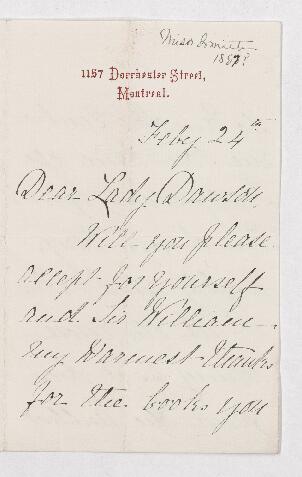 Miss Smith
1887?
1157 Dorchester Street,
Montreal.
Feby 24th
Dear Lady Dawson,
Will you please
accept for yourself
and Sir William
my warmest thanks
for the books you